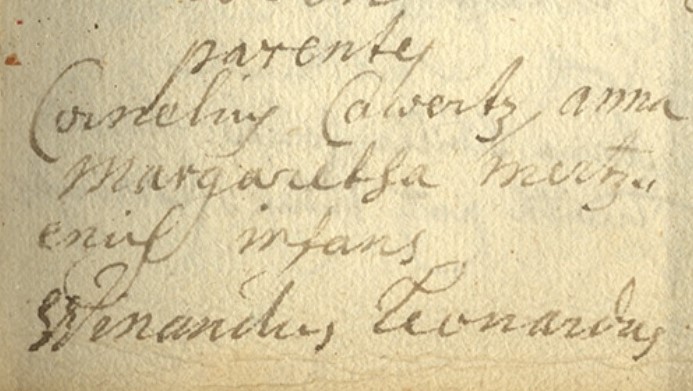 parentes
Cornelius Cawertz anna
Margaretha mertzs
infans
Leonardus